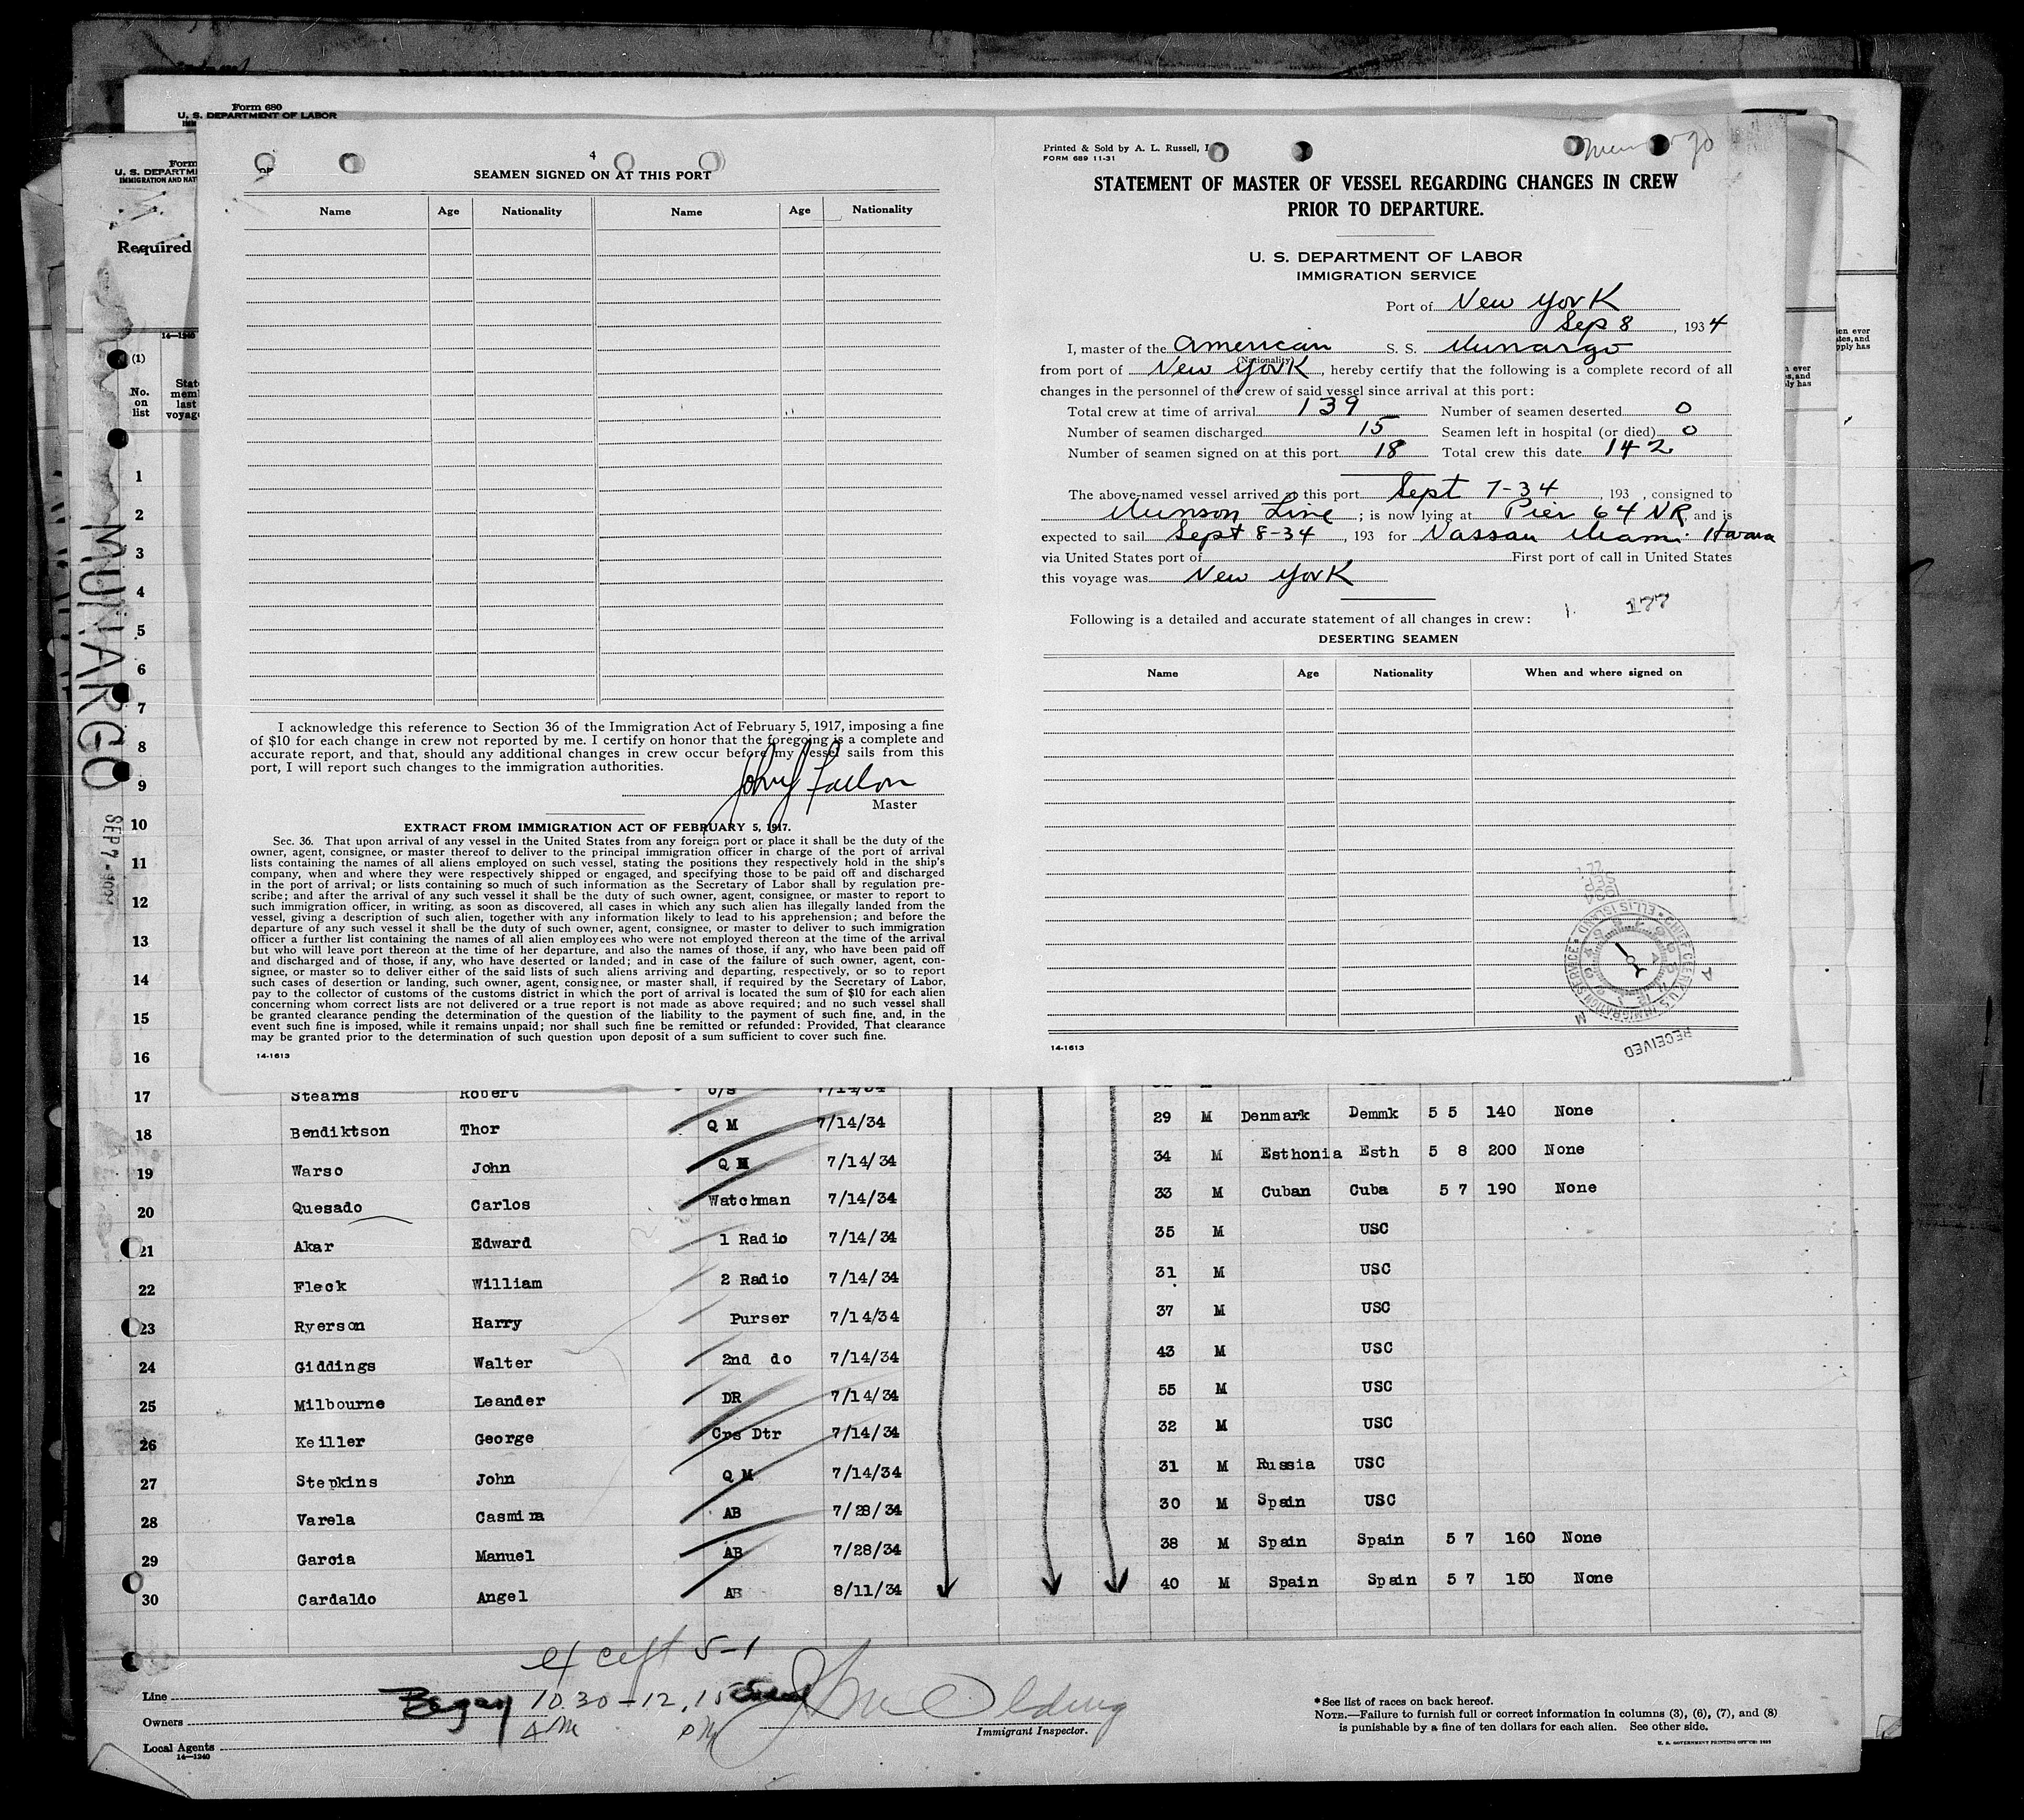 Form 680
U. S. DEPARTMENT OF LABOR
Form
U. S. DEPARTME
IMMIGRATION AND NAT
Required
14—1240
(1)
No. on list
State
mem
last
voyag
MUNARGO
SEP 7 - 1934
4
SEAMEN SIGNED ON AT THIS PORT
Name Age Nationality Name Age Nationality
I acknowledge this reference to Section 36 of the Immigration Act of February 5, 1917, imposing a fine
of $10 for each change in crew not reported by me. I certify on honor that the foregoing is a complete and
accurate report, and that, should any additional changes in crew occur before my vessel sails from this
port, I will report such changes to the immigration authorities.
John J Fallon
Master
EXTRACT FROM IMMIGRATION ACT OF FEBRUARY 5, 1917.
Sec. 36. That upon arrival of any vessel in the United States from any foreign port or place it shall be the duty of the
owner, agent, consignee, or master thereof to deliver to the principal immigration officer in charge of the port of arrival
lists containing the names of all aliens employed on such vessel, stating the positions they respectively hold in the ship's
company, when and where they were respectively shipped or engaged, and specifying those to be paid off and discharged
in the port of arrival; or lists containing so much of such information as the Secretary of Labor shall by regulation pre-
scribe; and after the arrival of any such vessel it shall be the duty of such owner, agent, consignee, or master to report to
such immigration officer, in writing, as soon as discovered, all cases in which any such alien has illegally landed from the
vessel, giving a description of such alien, together with any information likely to lead to his apprehension; and before the
departure of any such vessel it shall be the duty of such owner, agent, consignee, or master to deliver to such immigration
officer a further list containing the names of all alien employees who were not employed thereon at the time of the arrival
but who will leave port thereon at the time of her departure, and also the names of those, if any, who have been paid off
and discharged and of those, if any, who have deserted or landed; and in case of the failure of such owner, agent, con-
signee, or master so to deliver either of the said lists of such aliens arriving and departing, respectively, or so to report
such cases of desertion or landing, such owner, agent, consignee, or master shall, if required by the Secretary of Labor,
pay to the collector of customs of the customs district in which the port of arrival is located the sum of $10 for each alien
concerning whom correct lists are not delivered or a true report is not made as above required; and no such vessel shall
be granted clearance pending the determination of the question of the liability to the payment of such fine, and, in the
event such fine is imposed, while it remains unpaid; nor shall such fine be remitted or refunded: Provided, That clearance
may be granted prior to the determination of such question upon deposit of a sum sufficient to cover such fine.
14-1613
Printed & Sold by A. L. Russell, I
FORM 689 11-31
Munargo
STATEMENT OF MASTER OF VESSEL REGARDING CHANGES IN CREW
PRIOR TO DEPARTURE.
U. S. DEPARTMENT OF LABOR
IMMIGRATION SERVICE
Port of New York
Sep 8, 1934
I, master of the American S. S. Munargo
(Nationality)
from port of New York, hereby certify that the following is a complete record of all
changes in the personnel of the crew of said vessel since arrival at this port:
Total crew at time of arrival 139 Number of seamen deserted 0
Number of seamen discharged 15 Seamen left in hospital (or died) 0
Number of seamen signed on at this port 18 Total crew this date 142
The above-named vessel arrived at this port Sept 7-34, 193 , consigned to
Munson Line; is now lying at Pier 64 NR and is
expected to sail Sept 8-34, 193 for Nassau Miami Havana
via United States port of First port of call in United States
this voyage was New York
1. 177
Following is a detailed and accurate statement of all changes in crew:
DESERTING SEAMEN
Name Age Nationality When and where signed on
1934 SEP
CHIEF CLERK U.S. IMMIGRATION SERVICE ELLIS ISLAND
RECEIVED
14-1613
1
2
3
4
5
6
7
8
9
10
11
12
13
14
15
16
17 Stearns Robert O/S 7/14/34
18 Bendiktson Thor Q M 7/14/34 29 M Denmark Demmk 5 5 140 None
19 Warso John Q M 7/14/34 34 M Esthonia Esth 5 8 200 None
20 Quesado Carlos Watchman 7/14/34 33 M Cuban Cuba 5 7 190 None
21 Akar Edward 1 Radio 7/14/34 35 M USC
22 Fleck William 2 Radio 7/14/34 31 M USC
23 Ryerson Harry Purser 7/14/34 37 M USC
24 Giddings Walter 2nd do 7/14/34 43 M USC
25 Milbourne Leander DR 7/14/34 55 M USC
26 Keiller George Crs Dtr 7/14/34 32 M USC
27 Stepkins John Q M 7/14/34 31 M Russia USC
28 Varela Casmira AB 7/28/34 30 M Spain USC
29 Garcia Manuel AB 7/28/34 38 M Spain Spain 5 7 160 None
30 Cardaldo Angel AB 8/11/34 40 M Spain Spain 5 7 150 None
except 5-1
Began 10.30 - 12.15
AM PM
Line
Owners
Local Agents
14—1240
Immigrant Inspector.
*See list of races on back hereof.
NOTE.—Failure to furnish full or correct information in columns (3), (6), (7), and (8)
is punishable by a fine of ten dollars for each alien. See other side.
U. S. GOVERNMENT PRINTING OFFICE: 1931